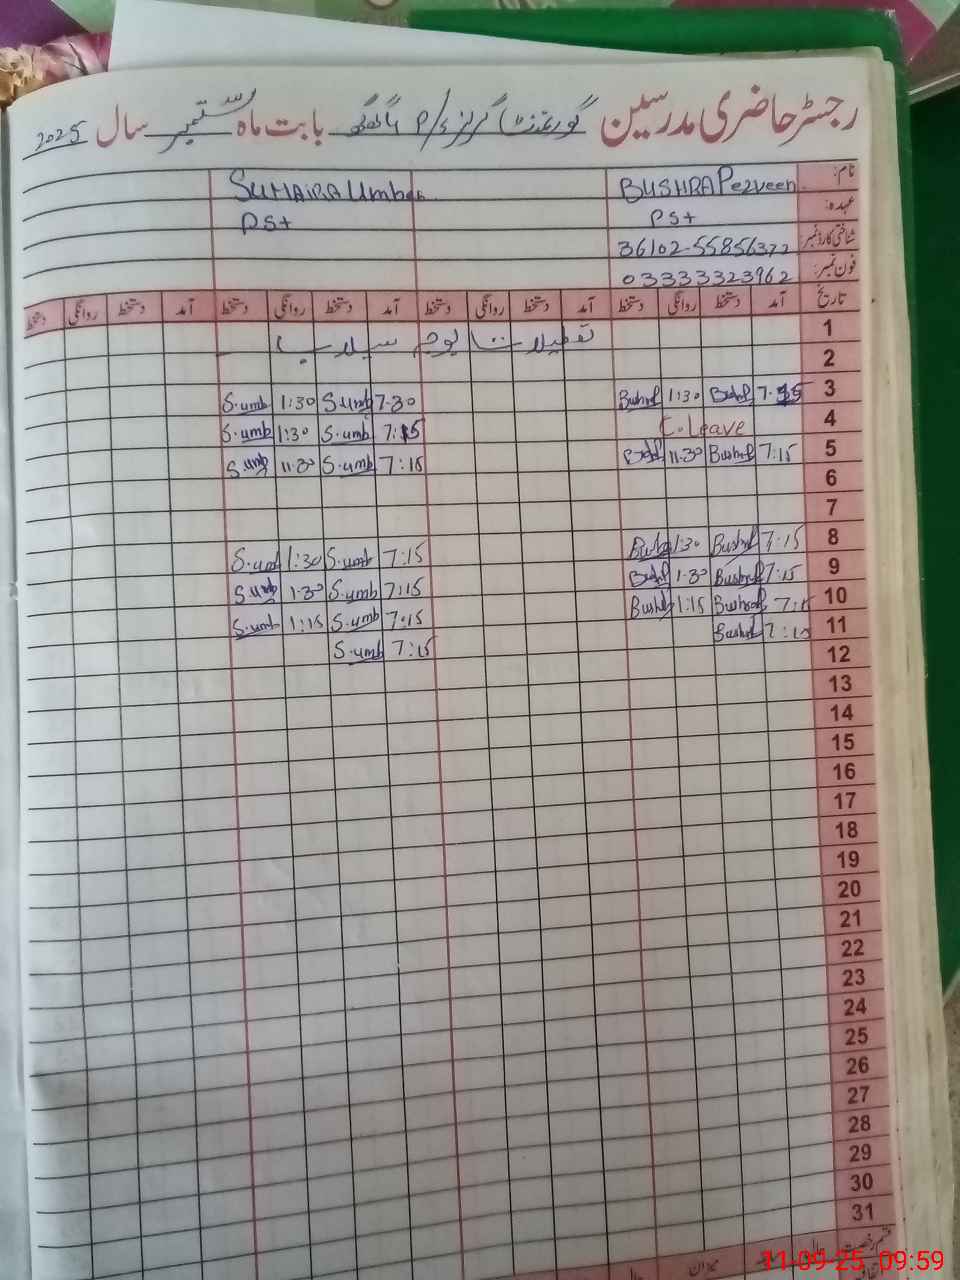 رجسٹر حاضری مدرسین گورنمنٹ گرلز P/ء بابت ماہ ستمبر سال 2025
نام: BUSHRA Perveen SUMAIRA Umber
عہدہ: PST PST
شناختی کارڈ نمبر: 36102-55856372
فون نمبر: 03333323962
تاریخ آمد دستخط روانگی دستخط آمد دستخط روانگی دستخط آمد دستخط روانگی دستخط آمد دستخط روانگی دستخط
1 تعطیلات بوجہ سیلاب
2
3 Bushra 1:30 Bushra S.umb 1:30 S.umb 7-30
4 C.Leave S.umb 1:30 S.umb 7:15
5 Bushra 11.30 Bushra 7:15 S.umb 11.30 S.umb 7:15
6
7
8 Bushra 1:30 Bushra 7:15 S.umb 1:30 S.umb 7:15
9 Bushra 1.30 Bushra 7:15 S.umb 1.30 S.umb 7:15
10 Bushra 1:15 Bushra 7:15 S.umb 1:15 S.umb 7:15
11 Bushra 7:15 S.umb 7:15
12
13
14
15
16
17
18
19
20
21
22
23
24
25
26
27
28
29
30
31
میزان
11-09-25 09:59